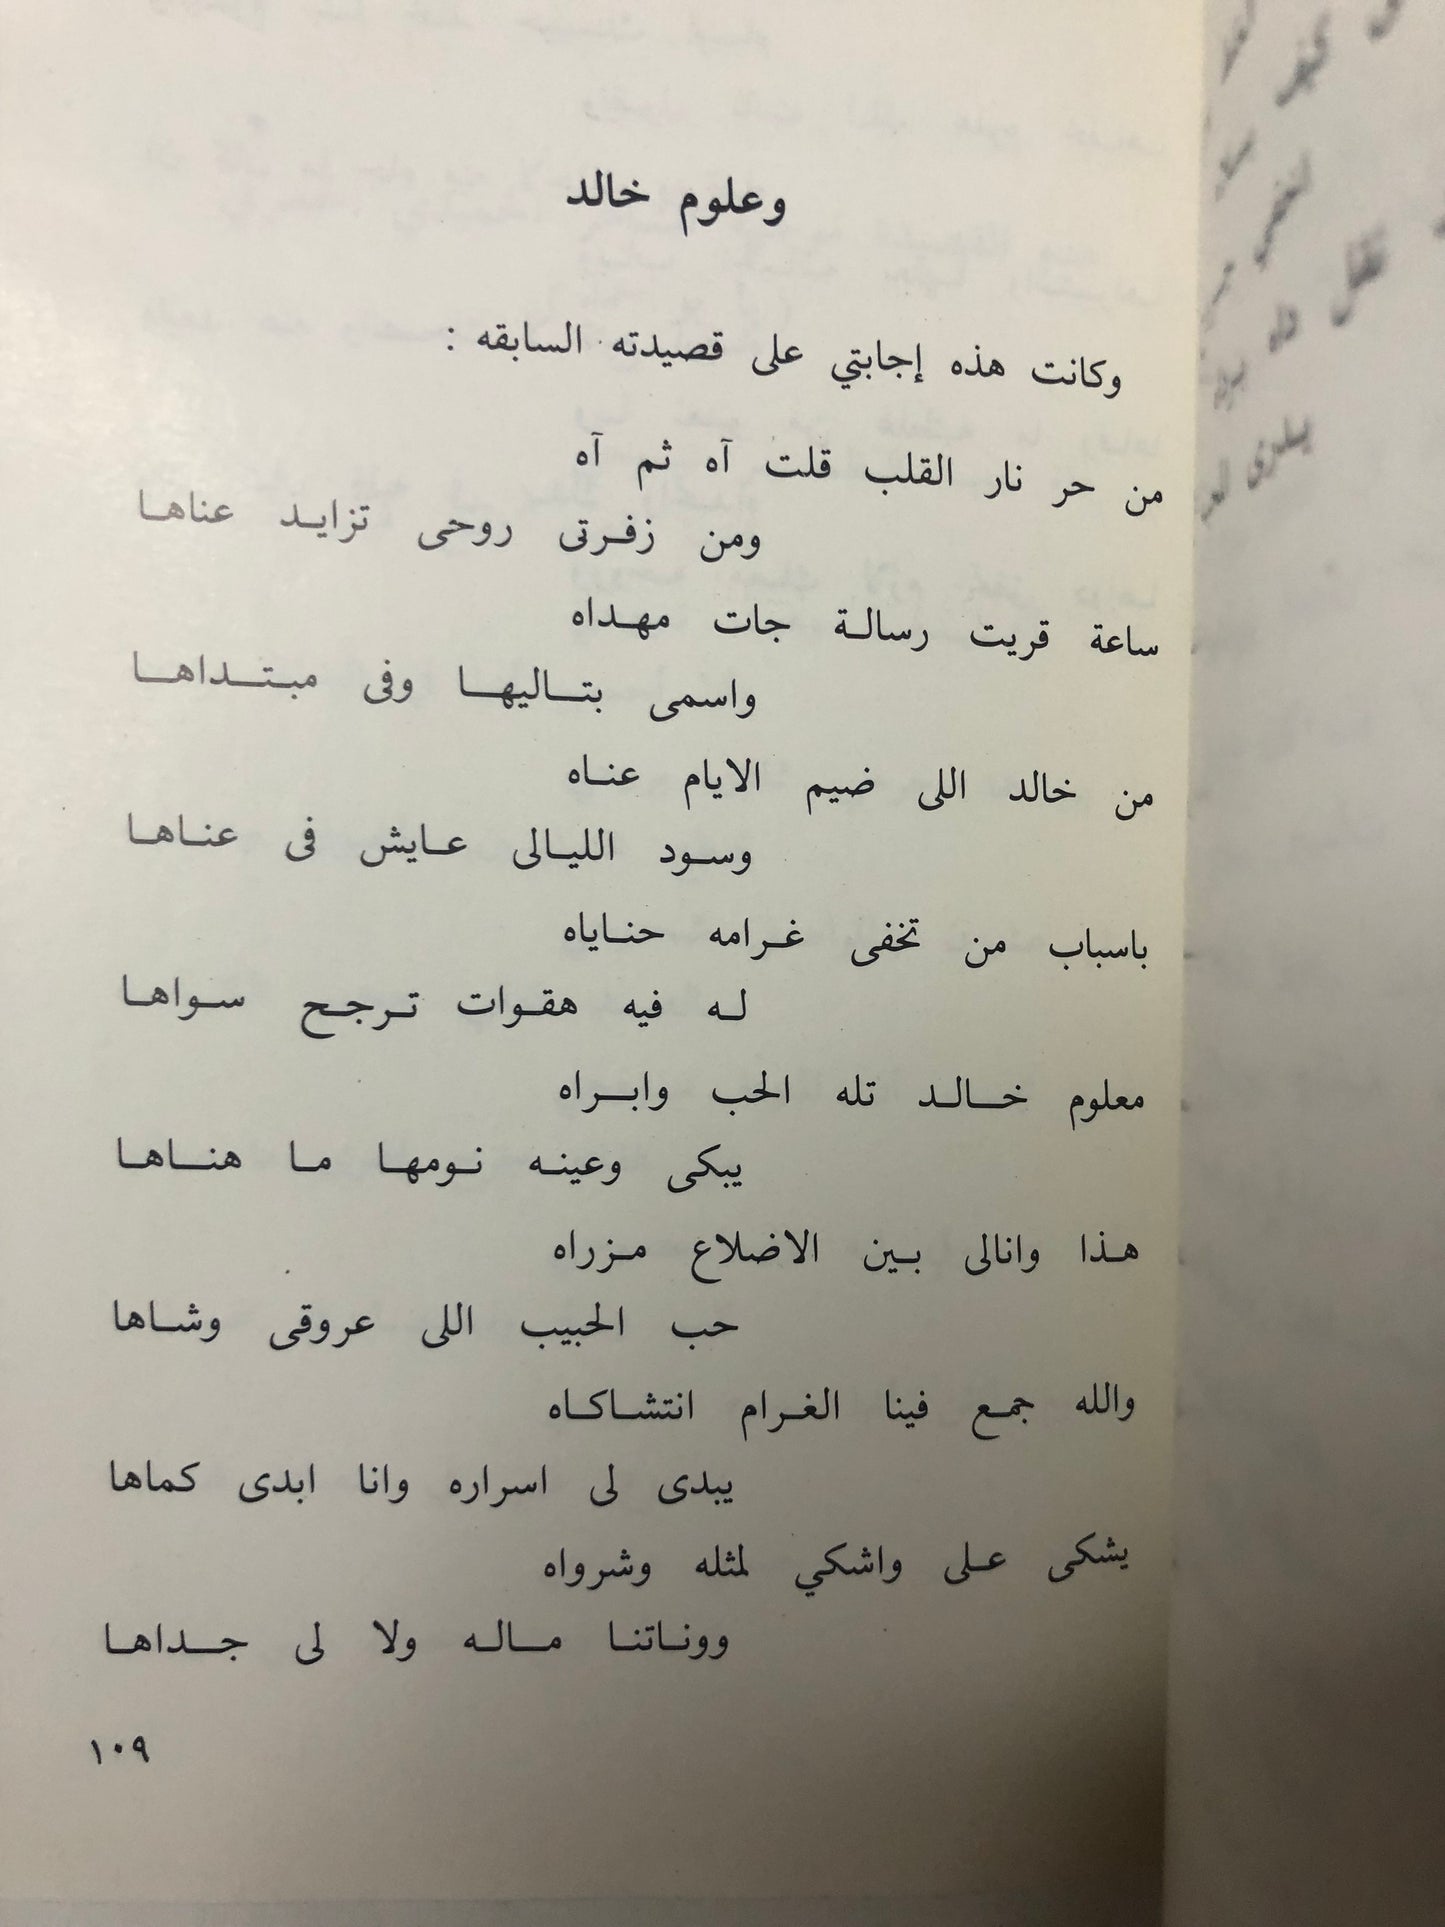 وعلوم خالد
وكانت هذه إجابتي على قصيدته السابقه :
من حر نار القلب قلت آه ثم آه
ومن زفرتى روحى تزايد عناها
ساعة قريت رسالة جات مهداه
واسمى بتاليها وفى مبتداها
من خالد اللى ضيم الايام عناه
وسود الليالى عايش فى عناها
باسباب من تخفى غرامه حناياه
له فيه هقوات ترجح سواها
معلوم خالد تله الحب وابراه
يبكى وعينه نومها ما هناها
هذا وانالى بين الاضلاع مزراه
حب الحبيب اللى عروقى وشاها
والله جمع فينا الغرام انتشاكاه
يبدى لى اسراره وانا ابدى كماها
يشكى على واشكي لمثله وشرواه
ووناتنا ماله ولا لى جداها
١٠٩